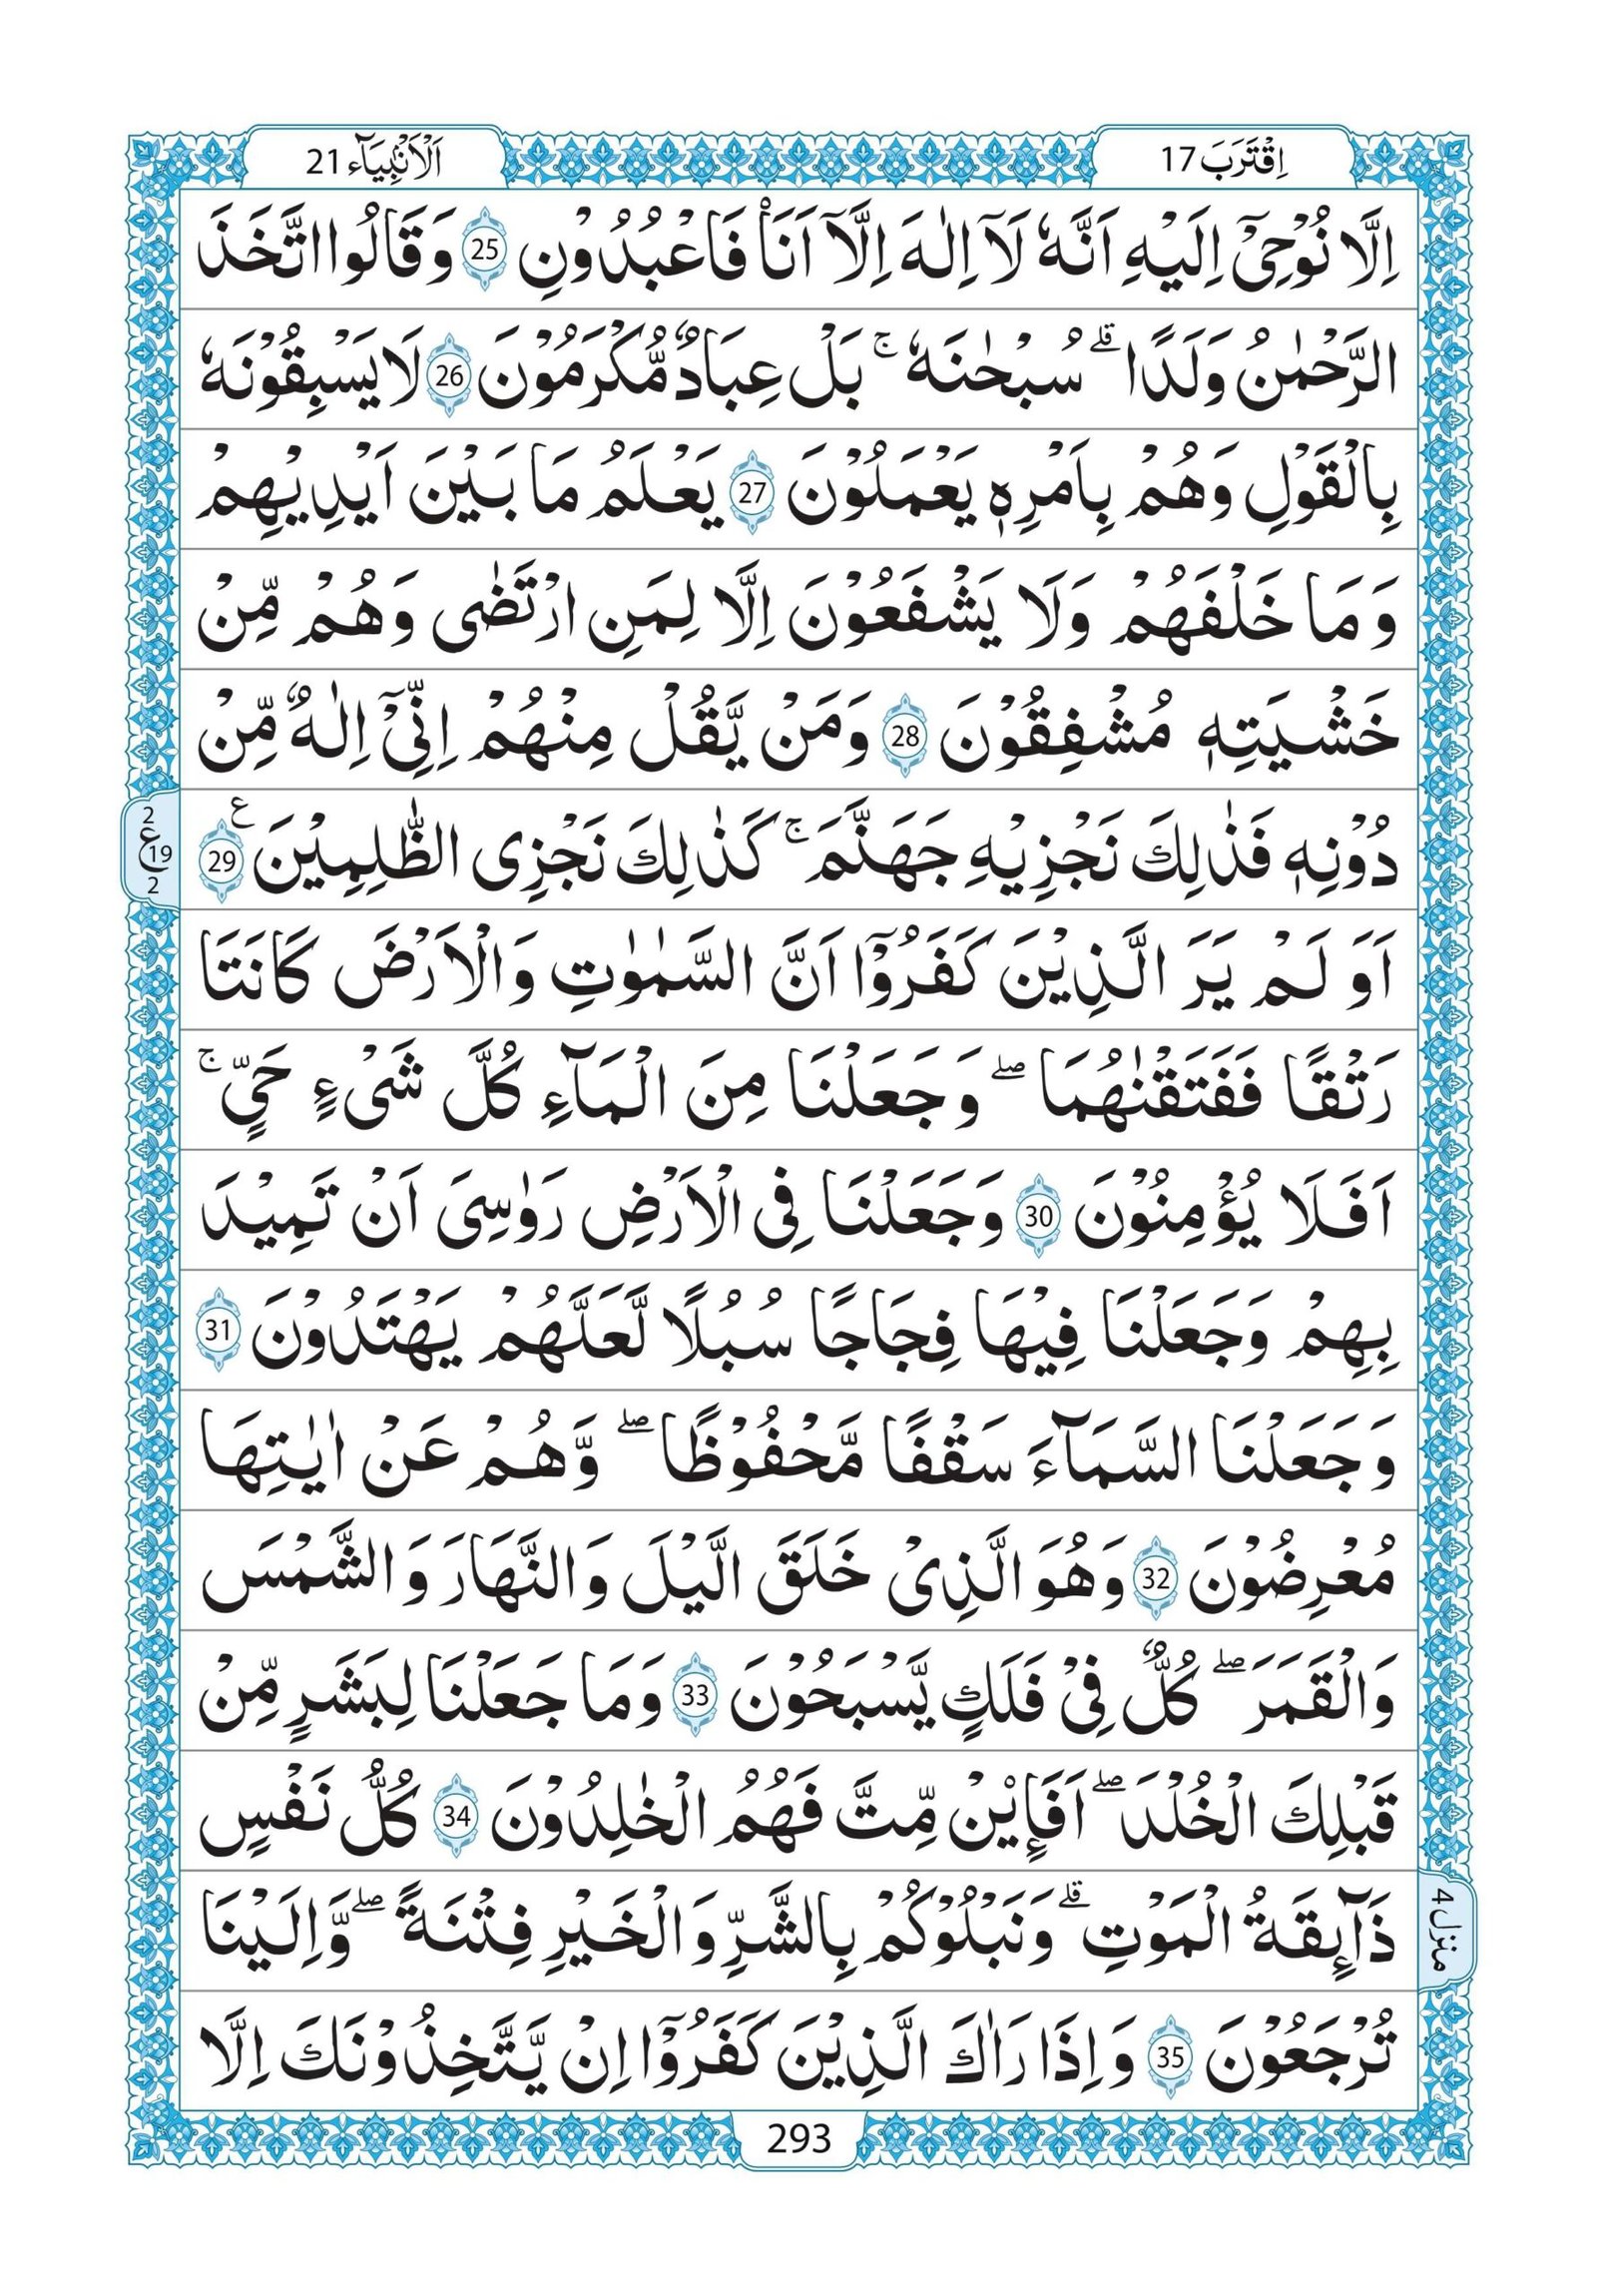 اِقْتَرَبَ 17
اَلْاَنْۢبِيَآء 21
اِلَّا نُوْحِيْۤ اِلَيْهِ اَنَّهٗ لَاۤ اِلٰهَ اِلَّاۤ اَنَا۠ فَاعْبُدُوْنِ 25 وَقَالُوا اتَّخَذَ
الرَّحْمٰنُ وَلَدًا ۗ سُبْحٰنَهٗ ۚ بَلْ عِبَادٌ مُّكْرَمُوْنَ 26 لَا يَسْبِقُوْنَهٗ
بِالْقَوْلِ وَهُمْ بِاَمْرِهٖ يَعْمَلُوْنَ 27 يَعْلَمُ مَا بَيْنَ اَيْدِيْهِمْ
وَمَا خَلْفَهُمْ وَلَا يَشْفَعُوْنَ اِلَّا لِمَنِ ارْتَضٰى وَهُمْ مِّنْ
خَشْيَتِهٖ مُشْفِقُوْنَ 28 وَمَنْ يَّقُلْ مِنْهُمْ اِنِّيْۤ اِلٰهٌ مِّنْ
دُوْنِهٖ فَذٰلِكَ نَجْزِيْهِ جَهَنَّمَ ۚ كَذٰلِكَ نَجْزِي الظّٰلِمِيْنَ ع 29
2 ع 19 2
اَوَلَمْ يَرَ الَّذِيْنَ كَفَرُوْۤا اَنَّ السَّمٰوٰتِ وَالْاَرْضَ كَانَتَا
رَتْقًا فَفَتَقْنٰهُمَا ۖ وَجَعَلْنَا مِنَ الْمَآءِ كُلَّ شَيْءٍ حَيٍّ ۚ
اَفَلَا يُؤْمِنُوْنَ 30 وَجَعَلْنَا فِي الْاَرْضِ رَوٰسِيَ اَنْ تَمِيْدَ
بِهِمْ وَجَعَلْنَا فِيْهَا فِجَاجًا سُبُلًا لَّعَلَّهُمْ يَهْتَدُوْنَ 31
وَجَعَلْنَا السَّمَآءَ سَقْفًا مَّحْفُوْظًا ۖ وَّهُمْ عَنْ اٰيٰتِهَا
مُعْرِضُوْنَ 32 وَهُوَ الَّذِيْ خَلَقَ الَّيْلَ وَالنَّهَارَ وَالشَّمْسَ
وَالْقَمَرَ ۖ كُلٌّ فِيْ فَلَكٍ يَّسْبَحُوْنَ 33 وَمَا جَعَلْنَا لِبَشَرٍ مِّنْ
قَبْلِكَ الْخُلْدَ ۖ اَفَا۟ئِنْ مِّتَّ فَهُمُ الْخٰلِدُوْنَ 34 كُلُّ نَفْسٍ
ذَآئِقَةُ الْمَوْتِ ۗ وَنَبْلُوْكُمْ بِالشَّرِّ وَالْخَيْرِ فِتْنَةً ۖ وَّاِلَيْنَا
منزل 4
تُرْجَعُوْنَ 35 وَاِذَا رَاٰكَ الَّذِيْنَ كَفَرُوْۤا اِنْ يَّتَّخِذُوْنَكَ اِلَّا
293